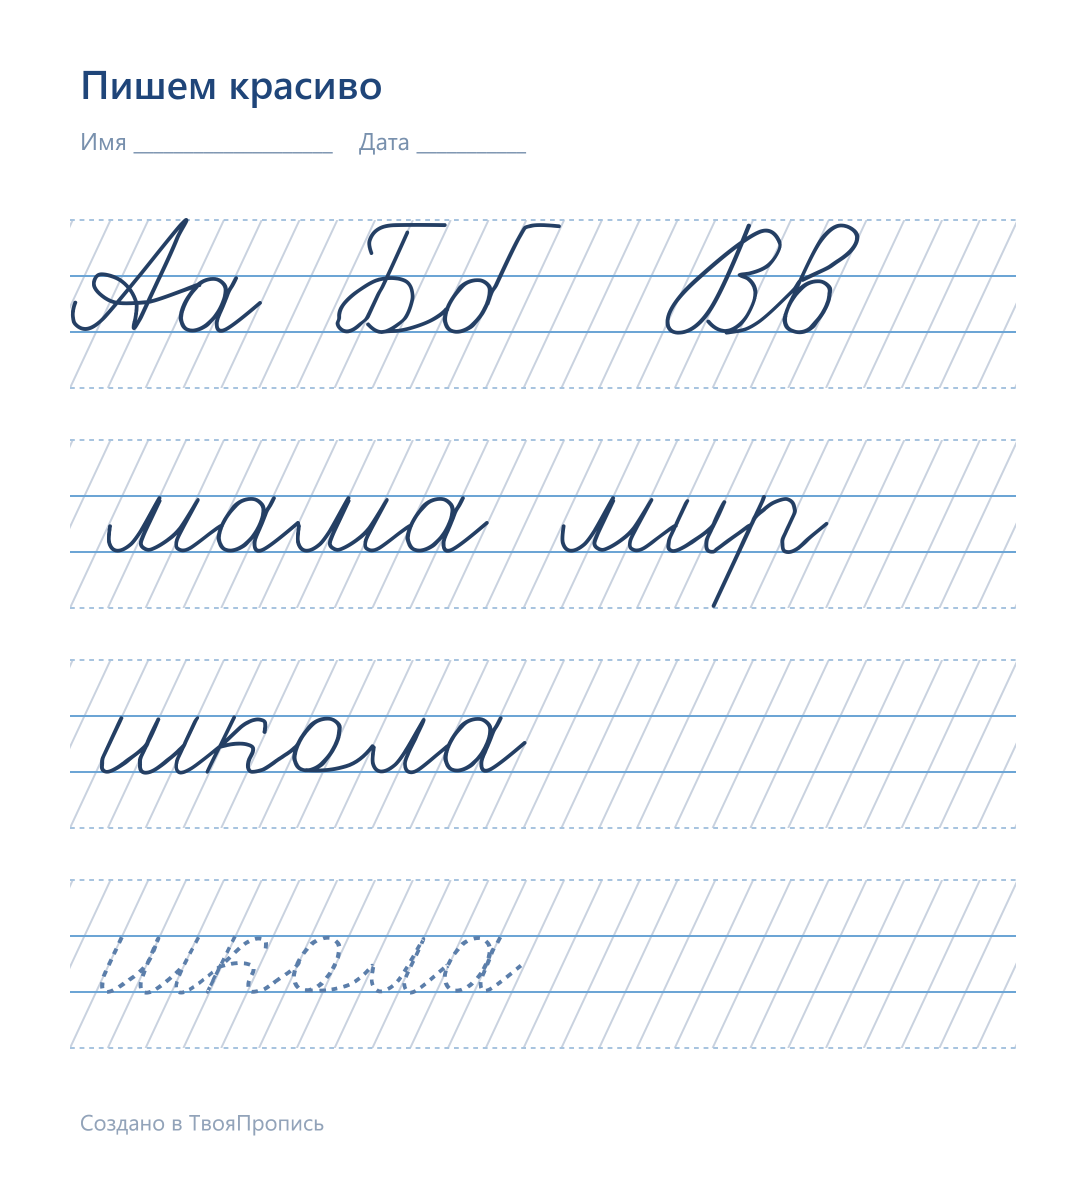 Пишем красиво
Имя __________________ Дата __________
Аа Бб Вв
мама мир
школа
школа
Создано в ТвояПропись